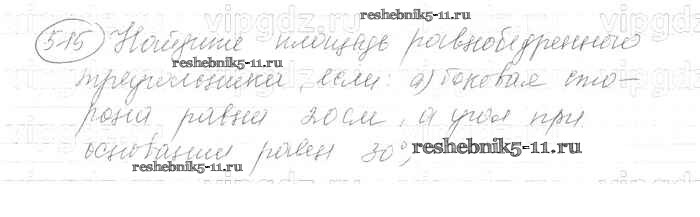 vipgdz.ru vipgdz.ru vipgdz.ru vipgdz.ru
reshebnik5-11.ru
515 Найдите площадь равнобедренного
reshebnik5-11.ru
треугольника, если: а) боковая сто-
рона равна 20 см, а угол при
основании равен 30°,
reshebnik5-11.ru